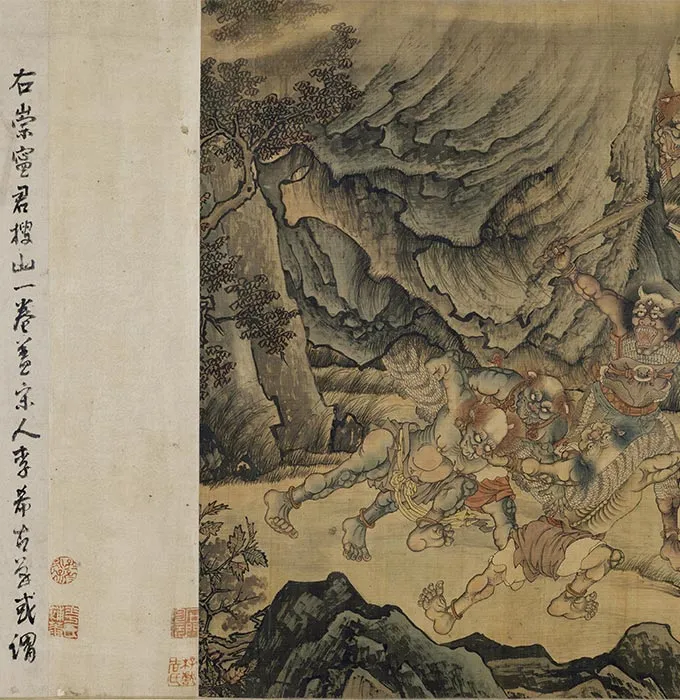 右崇寧君搜山一卷盖宋人李希古筆或謂